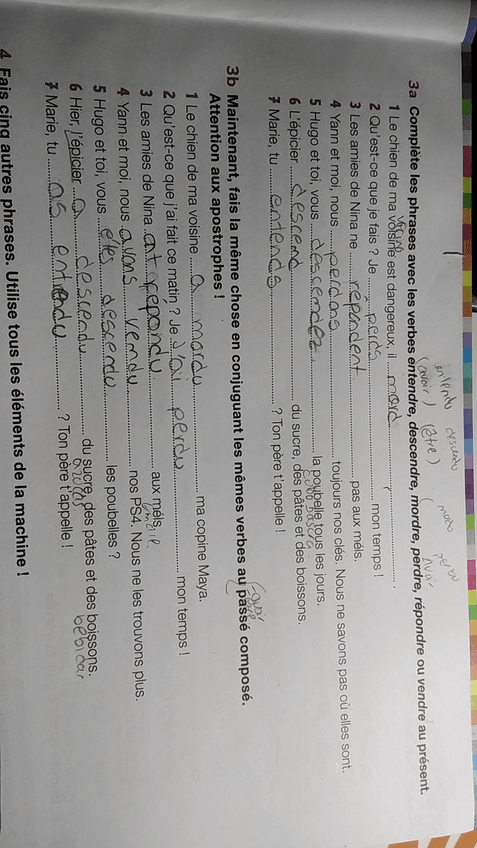 entendu descendu mordu perdu
(avoir) (être) ( avoir
3a Complète les phrases avec les verbes entendre, descendre, mordre, perdre, répondre ou vendre au présent.
1 Le chien de ma voisine est dangereux, il ... mord ... .
2 Qu'est-ce que je fais ? Je ... perds ... mon temps !
3 Les amies de Nina ne ... répondent ... pas aux méls.
4 Yann et moi, nous ... perdons ... toujours nos clés. Nous ne savons pas où elles sont.
5 Hugo et toi, vous ... descendez ... la poubelle tous les jours.
la basura
6 L'épicier ... descend ... du sucre, des pâtes et des boissons.
7 Marie, tu ... entends ... ? Ton père t'appelle !
3b Maintenant, fais la même chose en conjuguant les mêmes verbes au passé composé.
Attention aux apostrophes !
1 Le chien de ma voisine ... a mordu ... ma copine Maya.
2 Qu'est-ce que j'ai fait ce matin ? Je ... j'ai perdu ... mon temps !
3 Les amies de Nina ... ant repondu ... aux méls.
4 Yann et moi, nous ... avons vendu ... nos PS4. Nous ne les trouvons plus.
5 Hugo et toi, vous ... êtes descendu ... les poubelles ?
6 Hier, l'épicier ... a descendu ... du sucre, des pâtes et des boissons.
7 Marie, tu ... as entendu ... ? Ton père t'appelle !
4 Fais cinq autres phrases. Utilise tous les éléments de la machine !